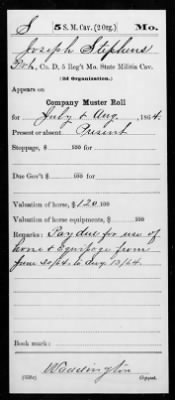 S | 5 S. M. Cav. (2 Org.) | Mo.
Joseph Stephens
Pvt., Co. D, 5 Reg't Mo. State Militia Cav.
(2d Organization.)
Appears on
Company Muster Roll
for July & Aug., 1864.
Present or absent Present
Stoppage, $ 100 for
Due Gov't $ 100 for
Valuation of horse, $ 120 100
Valuation of horse equipments, $ 100
Remarks: Pay due for use of
horse & Equipage from
June 30/64 to Aug 13/64
Book mark:
Waddington
(858c) Copyist.